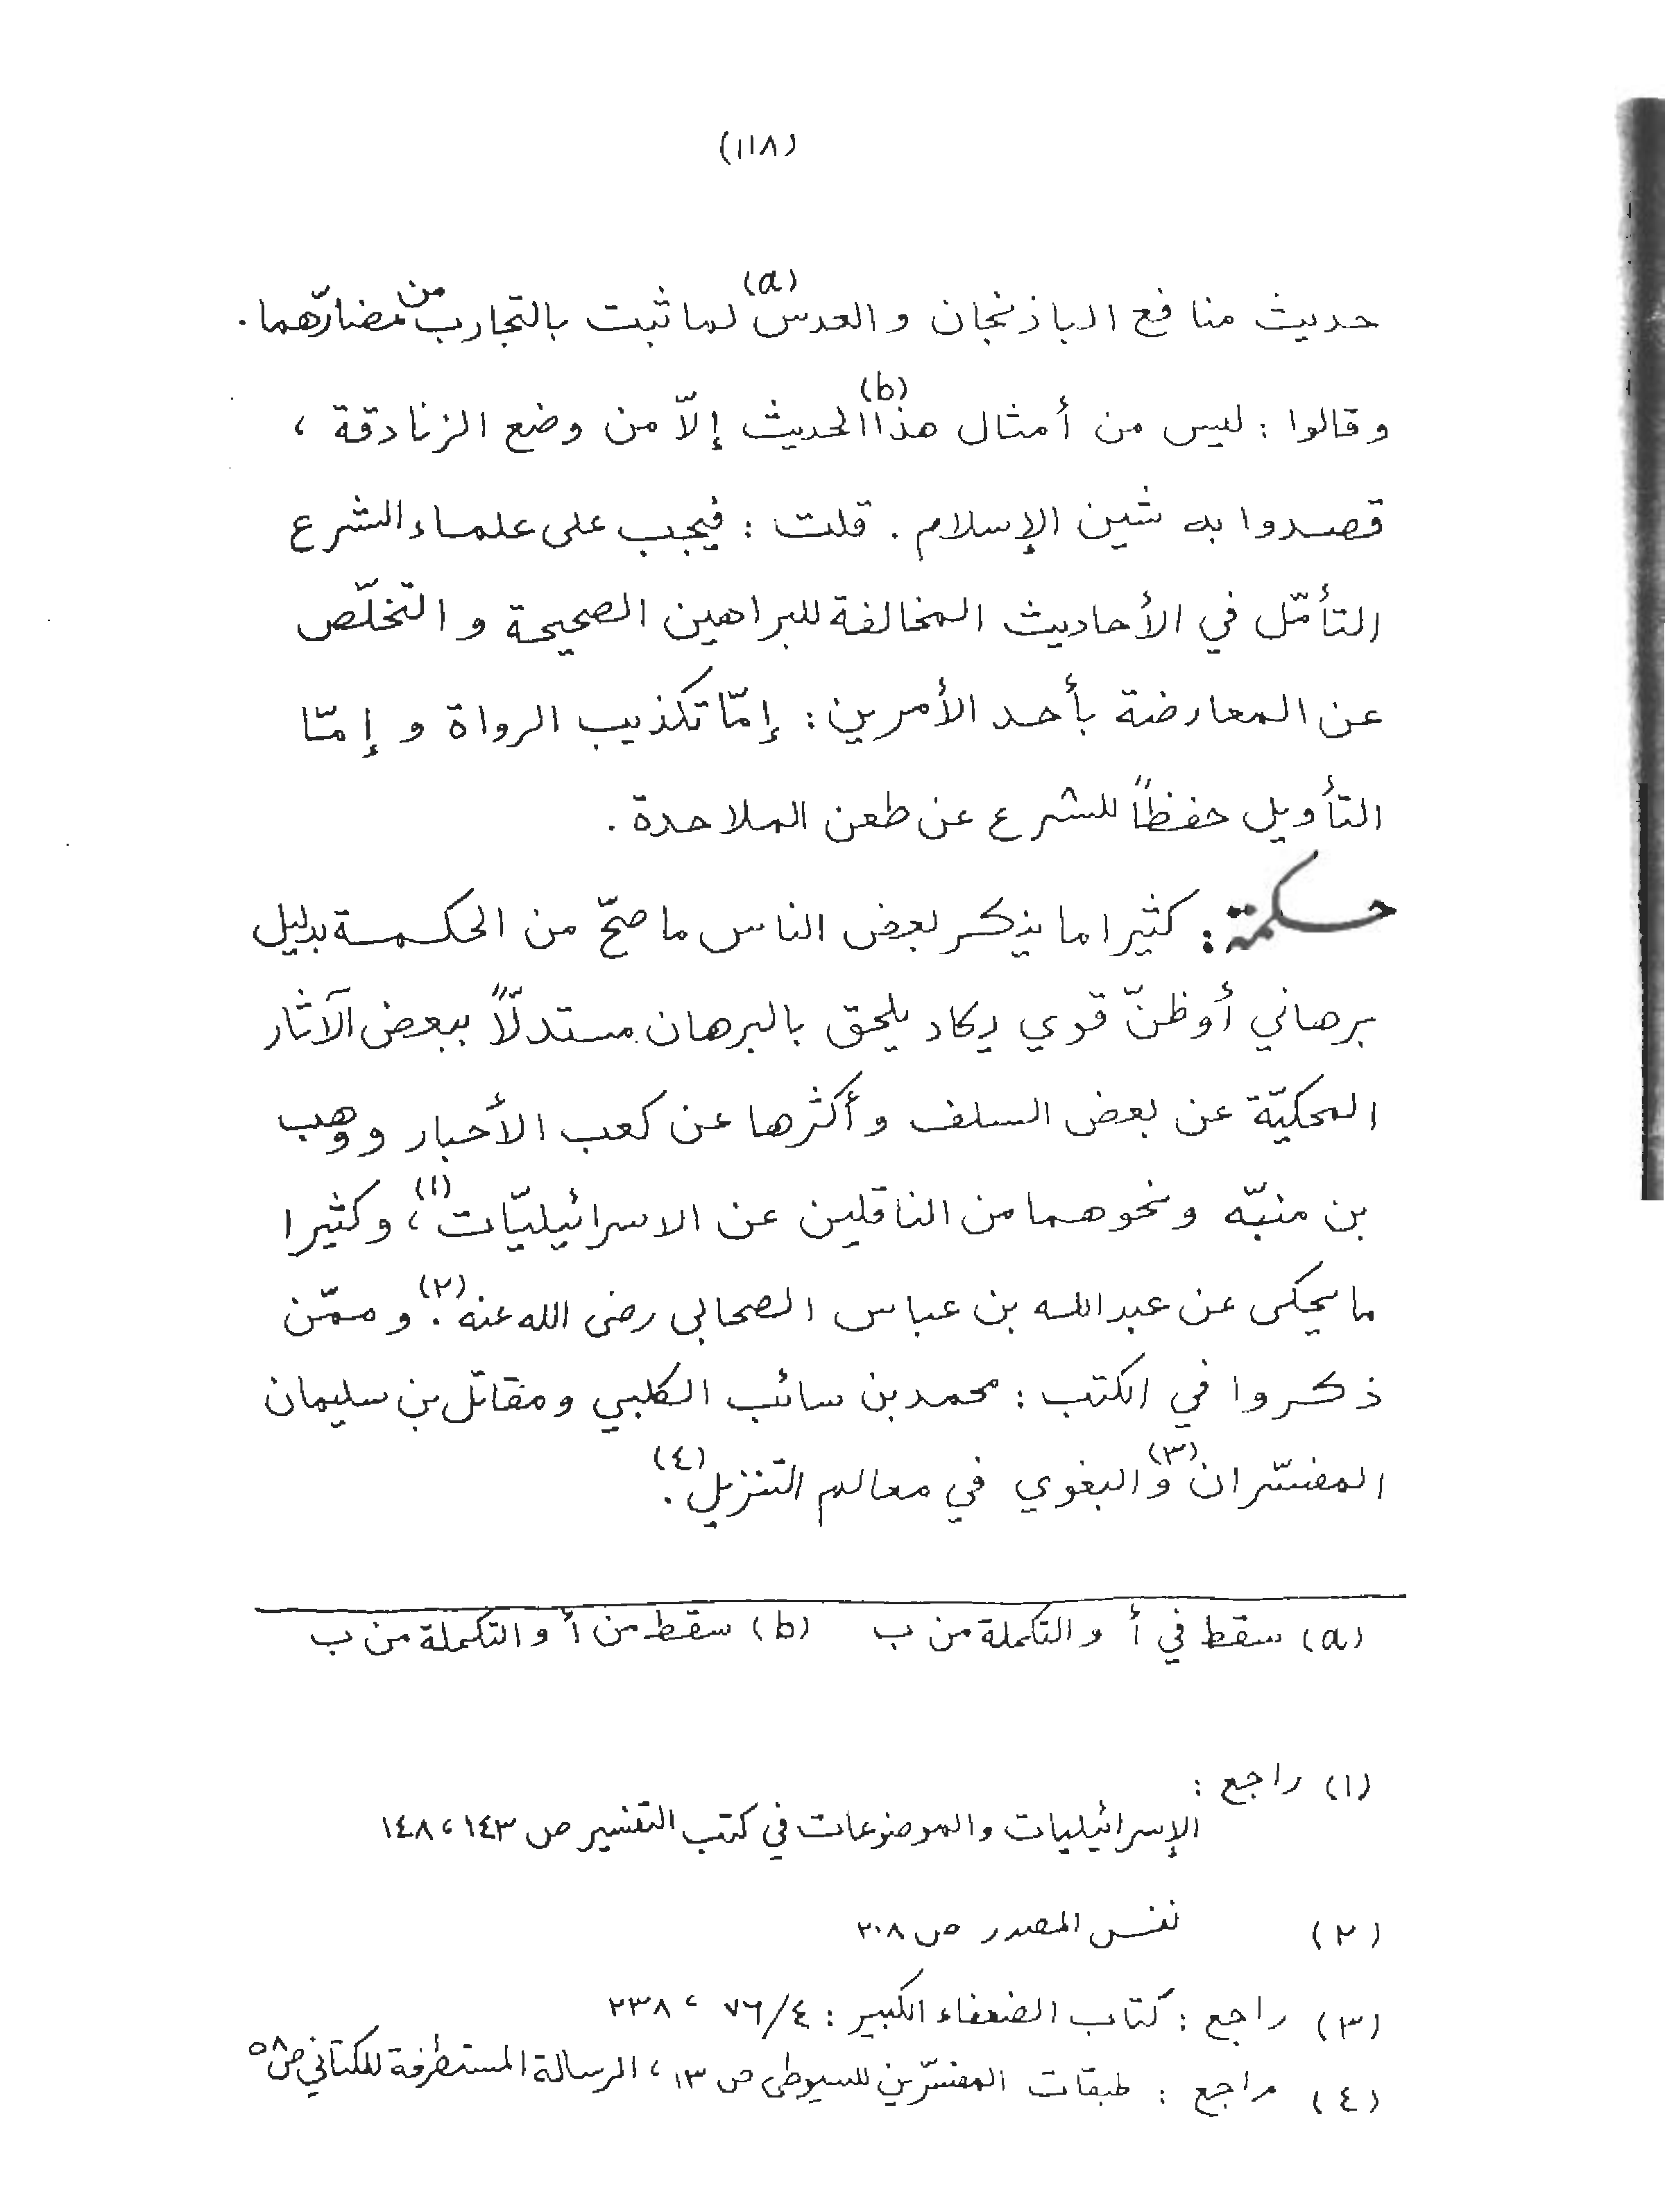 (١١٨)
حديث منافع الباذنجان والعدس(a) لما ثبت بالتجارب من مضارّهما.
وقالوا: ليس من أمثال هذا(b) الحديث إلاّ من وضع الزنادقة،
قصدوا به شين الإسلام. قلت: فيجب على علماء الشرع
التأمّل في الأحاديث المخالفة للبراهين الصحيحة والتخلّص
عن المعارضة بأحد الأمرين: إمّا تكذيب الرواة وإمّا
التأويل حفظاً للشرع عن طعن الملاحدة.
حكمة: كثيرا ما يذكر لبعض الناس ما صحّ من الحكمة بدليل
برهاني أوظنّ قوي يكاد يلحق بالبرهان مستدلّاً ببعض الآثار
المحكيّة عن بعض السلف وأكثرها عن كعب الأحبار ووهب
بن منبّه ونحوهما من الناقلين عن الاسرائيليّات(١)، وكثيرا
ما يحكى عن عبدالله بن عباس الصحابي رضى الله عنه(٢). وممّن
ذكروا في الكتب: محمد بن سائب الكلبي ومقاتل بن سليمان
المفسّران(٣) والبغوي في معالم التنزيل(٤).
(a) سقط في أ والتكملة من ب (b) سقط من أ والتكملة من ب
(١) راجع:
الإسرائيليات والموضوعات في كتب التفسير ص ١٤٣، ١٤٨
(٢) نفس المصدر ص ٢٠٨
(٣) راجع: كتاب الضعفاء الكبير: ٤/٧٦، ٢٣٨
(٤) راجع: طبقات المفسّرين للسيوطى ص ١٣، الرسالة المستطرفة للكتاني ص ٥٨